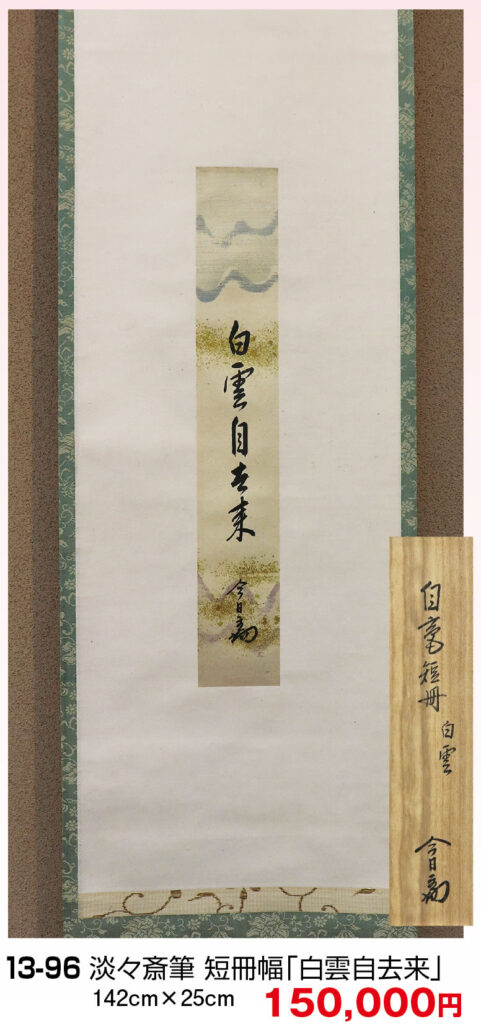 白雲自去来
今日斎
自毫短冊 白雲
今日斎
13-96 淡々斎筆 短冊幅「白雲自去来」
142cm×25cm 150,000円